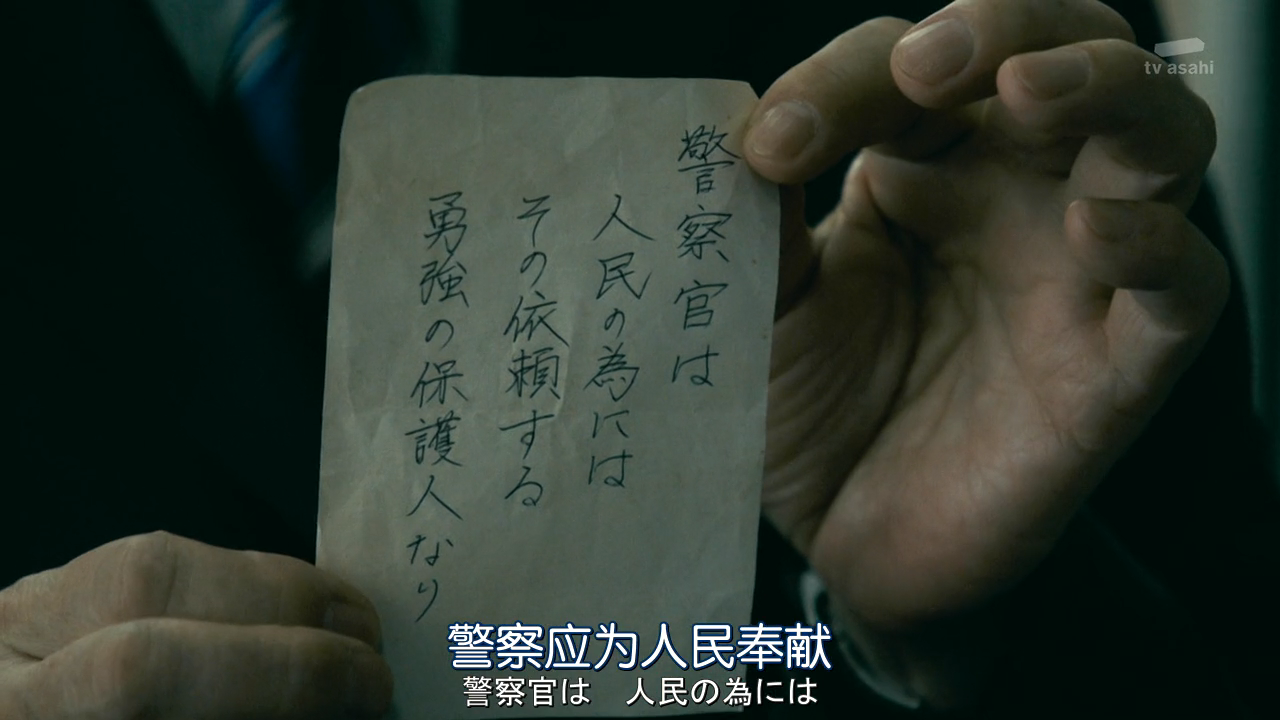 tv asahi
警察官は
人民の為には
その依頼する
勇強の保護人なり
警察应为人民奉献
警察官は　人民の為には